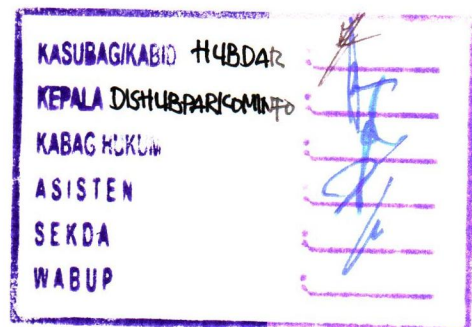 KASUBAG/KABID HUBDAR :
KEPALA DISHUBPAR/COMINFO :
KABAG HUKUM :
ASISTEN :
SEKDA :
WABUP :